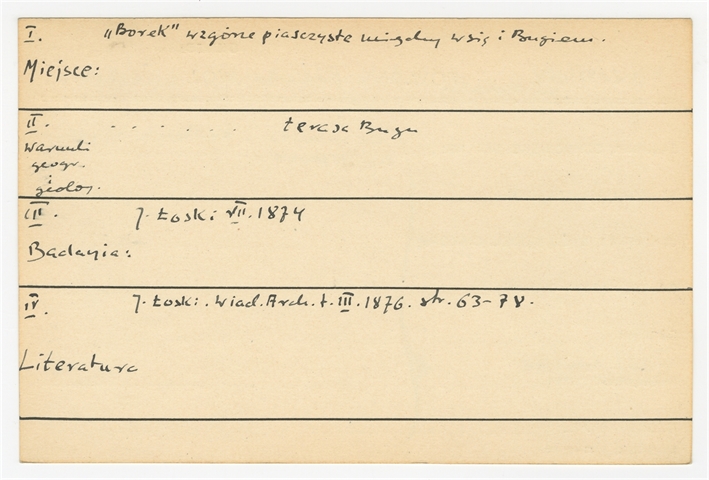 I. „Borek" wzgórze piasczyste między wsią i Bugiem.
Miejsce:
II. . . . . . . terasa Bugu
Warunki
geogr.
i
geolog.
III. J. Łoski VII. 1874
Badania:
IV. J. Łoski. Wiad. Arch. t. III. 1876. str. 63-78.
Literatura